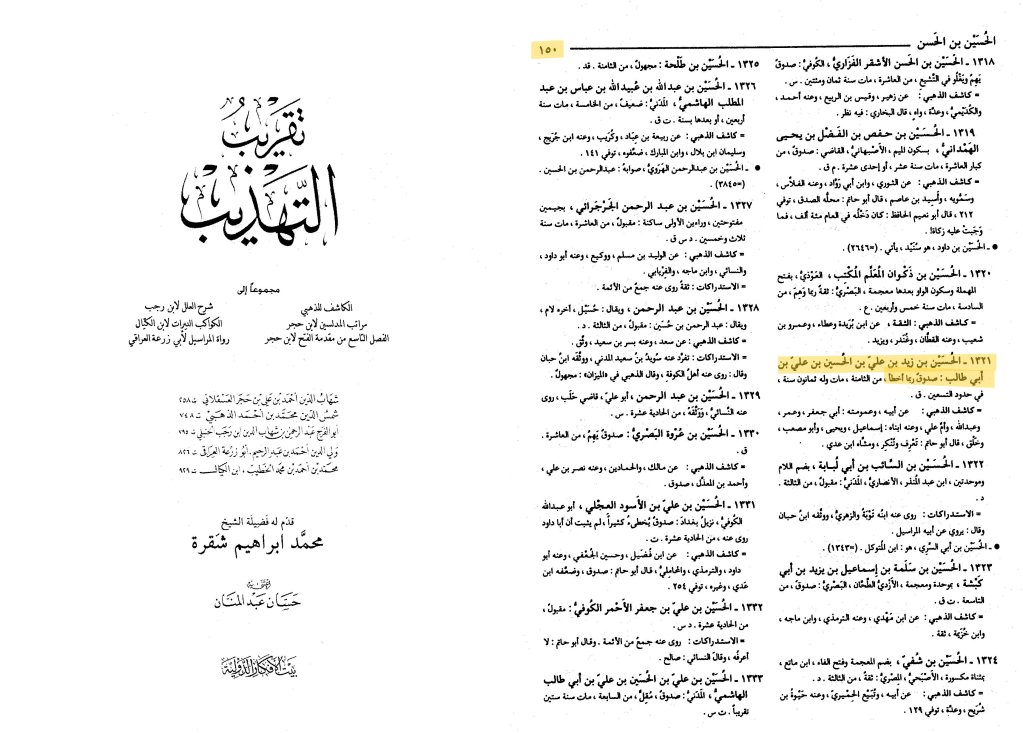 الحُسَيْن بن الحَسن
١٥٠
١٣١٨ ـ الحُسَيْن بن الحَسن الأشقر الفَزَاريُّ ، الكُوفيُّ : صدوقٌ
يَهِمُ ويَغْلُو في التَّشيع ، من العاشرة ، مات سنة ثمان ومئتين . س .
= كاشف الذهبي : عن زهير ، وقيس بن الربيع ، وعنه أحمد ،
والكُدَيْميُّ ، وعدَّة ، واهٍ ، قال البخاري : فيه نظر .
١٣١٩ ـ الحُسَيْن بن حفص بن الفضل بن يحيى
الهَمْدانيُّ ، بسكون الميم ، الأصْبهانيُّ ، القاضي : صدوقٌ ، من
كبار العاشرة ، مات سنة عشر ، أو إحدى عشرة . م ق .
= كاشف الذهبي : عن الثوري ، وابن أبي رَوَّاد ، وعنه الفَلَّاس ،
وسَمّويه ، وأُسيد بن عاصم ، قال أبو حاتم : محلُّه الصدق ، توفي
٢١٢ ، قال أبو نعيم الحافظ : كان دَخْلُه في العام مئة ألف ، فما
وَجَبتْ عليه زكاةٌ .
● ـ الحُسَيْن بن داود ، هو سُنَيْد ، يأتي . (=٢٦٤٦) .
١٣٢٠ ـ الحُسَيْن بن ذَكْوان المُعَلِّم المُكْتِب ، العَوْذيُّ ، بفتح
المهملة وسكون الواو بعدها معجمة ، البَصْريُّ : ثقةٌ ربما وَهِمَ ، من
السادسة ، مات سنة خمس وأربعين . ع .
= كاشف الذهبي : الثقة ، عن ابن بُرَيدة وعطاء ، وعمرو بن
شعيب ، وعنه القطَّان ، وغُنْدَر ، ويزيد .
١٣٢١ ـ الحُسَيْن بن زيد بن عليّ بن الحُسين بن عليّ بن
أبي طالب : صدوقٌ ربما أخطأ ، من الثامنة ، مات وله ثمانون سنة ،
في حدود التسعين . ق .
= كاشف الذهبي : عن أبيه ، وعمومته : أبي جعفر ، وعمر ،
وعبدالله ، وأمّ علي ، وعنه ابناه : إسماعيل ، ويحيى ، وأبو مصعب ،
وخَلْق ، قال أبو حاتم : تَعْرِف وتُنْكِر ، ومشَّاه ابن عدي .
١٣٢٢ ـ الحُسَيْن بن السائب بن أبي لُبابة ، بضم اللام
وموحدتين ، ابن عبد المُنذر ، الأنصاريُّ ، المَدَنيُّ : مقبولٌ ، من الثالثة .
د .
= الاستدراكات : روى عنه ابنُه تَوْبَةُ والزهريُّ ، ووثّقه ابنُ حبان
وقال : يروي عن أبيه المراسيل .
● ـ الحُسَيْن بن أبي السَّري ، هو : ابن المُتوكل . (=١٣٤٣) .
١٣٢٣ ـ الحُسَيْن بن سَلَمة بن إسماعيل بن يزيد بن أبي
كَبْشَة ، بموحدة ومعجمة ، الأَزْديُّ الطَّحَّان ، البَصْريُّ : صدوقٌ ، من
التاسعة . ت ق .
= كاشف الذهبي : عن ابن مَهْدي ، وعنه الترمذي ، وابن ماجه ،
وابن خُزَيمة ، ثقة .
١٣٢٤ ـ الحُسَيْن بن شُفَيّ ، بضم المعجمة وفتح الفاء ، ابن ماتع ،
بمثناة مكسورة ، الأصْبَحيُّ ، المِصْريُّ : ثقةٌ ، من الثالثة . د .
= كاشف الذهبي : عن أبيه ، وتُبَيْع الحِمْيَري ، وعنه حَيْوةُ بن
شُرَيح ، وعدَّة ، توفي ١٢٩ .
١٣٢٥ ـ الحُسَيْن بن طَلْحة : مجهولٌ ، من الثامنة . قد .
١٣٢٦ ـ الحُسَيْن بن عبدالله بن عُبيدالله بن عباس بن عبد
المطلب الهاشميُّ ، المَدَنيُّ : ضعيفٌ ، من الخامسة ، مات سنة
أربعين ، أو بعدها بسنة . ت ق .
= كاشف الذهبي : عن ربيعة بن عِبَاد ، وكُرَيب ، وعنه ابن جُرَيج ،
وسليمان ابن بلال ، وابن المبارك ، ضعَّفوه ، توفي ١٤١ .
● ـ الحُسَيْن بن عبدالرحمن الهَرَويُّ ، صوابه : عبدالرحمن بن الحسين .
(=٣٨٤٥) .
١٣٢٧ ـ الحُسَيْن بن عبد الرحمن الجَرْجَرائي ، بجيمين
مفتوحتين ، وراءين الأولى ساكنة : مقبولٌ ، من العاشرة ، مات سنة
ثلاث وخمسين . د س ق .
= كاشف الذهبي : عن الوليد بن مسلم ، ووكيع ، وعنه أبو داود ،
والنسائي ، وابن ماجه ، والفِرْيابي .
= الاستدراكات : ثقةٌ روى عنه جمعٌ من الأئمة .
١٣٢٨ ـ الحُسَيْن بن عبد الرحمن ، ويقال : حُسَيْل ، آخره لام ،
ويقال : عبد الرحمن بن حُسَين : مقبولٌ ، من الثالثة . د .
= كاشف الذهبي : عن سعد ، وعنه بسر بن سعيد ، وثِّق .
= الاستدراكات : تفرَّد عنه سُويدُ بنُ سعيد المدني ، ووثَّقه ابنُ حبان
وقال : روى عنه أهلُ الكوفة ، وقال الذهبي في «الميزان» : مجهولٌ .
١٣٢٩ ـ الحُسَيْن بن عبد الرحمن ، أبو عليّ ، قاضي حَلَب ، روى
عنه النَّسائيُّ ، وَوَثَّقَهُ ، من الحادية عشرة . س .
١٣٣٠ ـ الحُسَيْن بن عُرْوة البَصْريُّ : صدوقٌ يَهِمُ ، من العاشرة .
ق .
= كاشف الذهبي : عن مالك ، والحمادين ، وعنه نصر بن علي ،
وأحمد بن المعذَّل ، صدوق .
١٣٣١ ـ الحُسَيْن بن عليّ بن الأسود العجلي ، أبو عبدالله
الكُوفيُّ ، نزيلُ بغداد : صدوقٌ يُخطىءُ كثيراً ، لم يثبت أن أبا داود
روى عنه ، من الحادية عشرة . ت .
= كاشف الذهبي : عن ابن فُضَيل ، وحسين الجُعْفي ، وعنه أبو
داود ، والترمذي ، والمحامليُّ ، قال أبو حاتم : صدوق ، وضعَّفه ابن
عَدي ، وغيره ، توفي ٢٥٤ .
١٣٣٢ ـ الحُسَيْن بن عليّ بن جعفر الأحْمر الكُوفيُّ : مقبولٌ ،
من الحادية عشرة . د س .
= الاستدراكات : روى عنه جمعٌ من الأئمة . وقال أبو حاتم : لا
أعرفُه ، وقال النسائي : صالح .
١٣٣٣ ـ الحُسَيْن بن علي بن الحُسين بن عليّ بن أبي طالب
الهاشميُّ ، المَدَنيُّ : صدوقٌ ، مُقِلٌّ ، من السابعة ، مات سنة ستين
تقريباً . ت س .
تقريب
التهذيب
مجموعاً إلى
الكاشف للذهبي
مراتب المدلسين لابن حجر
الفصل التاسع من مقدمة الفتح لابن حجر
شرح العلل لابن رجب
الكواكب النيرات لابن الكيّال
رواة المراسيل لأبي زرعة العراقي
شهاب الدين أحمد بن علي بن حجر العسقلاني ت ٢٥٨
شمس الدين محمد بن أحمد الذهبي ت ٧٤٨
أبو الفرج عبد الرحمن بن شهاب الدين ابن رجب الحنبلي ت ٧٩٥
ولي الدين أحمد بن عبد الرحيم ، أبو زرعة العراقي ت ٨٢٦
محمد بن أحمد بن محمد الخطيب ، ابن الكيال ت ٩٢٩
قدّم له فضيلة الشيخ
محمّد ابراهيم شقرة
حسّان عبد المنان
بيت الأفكار الدولية